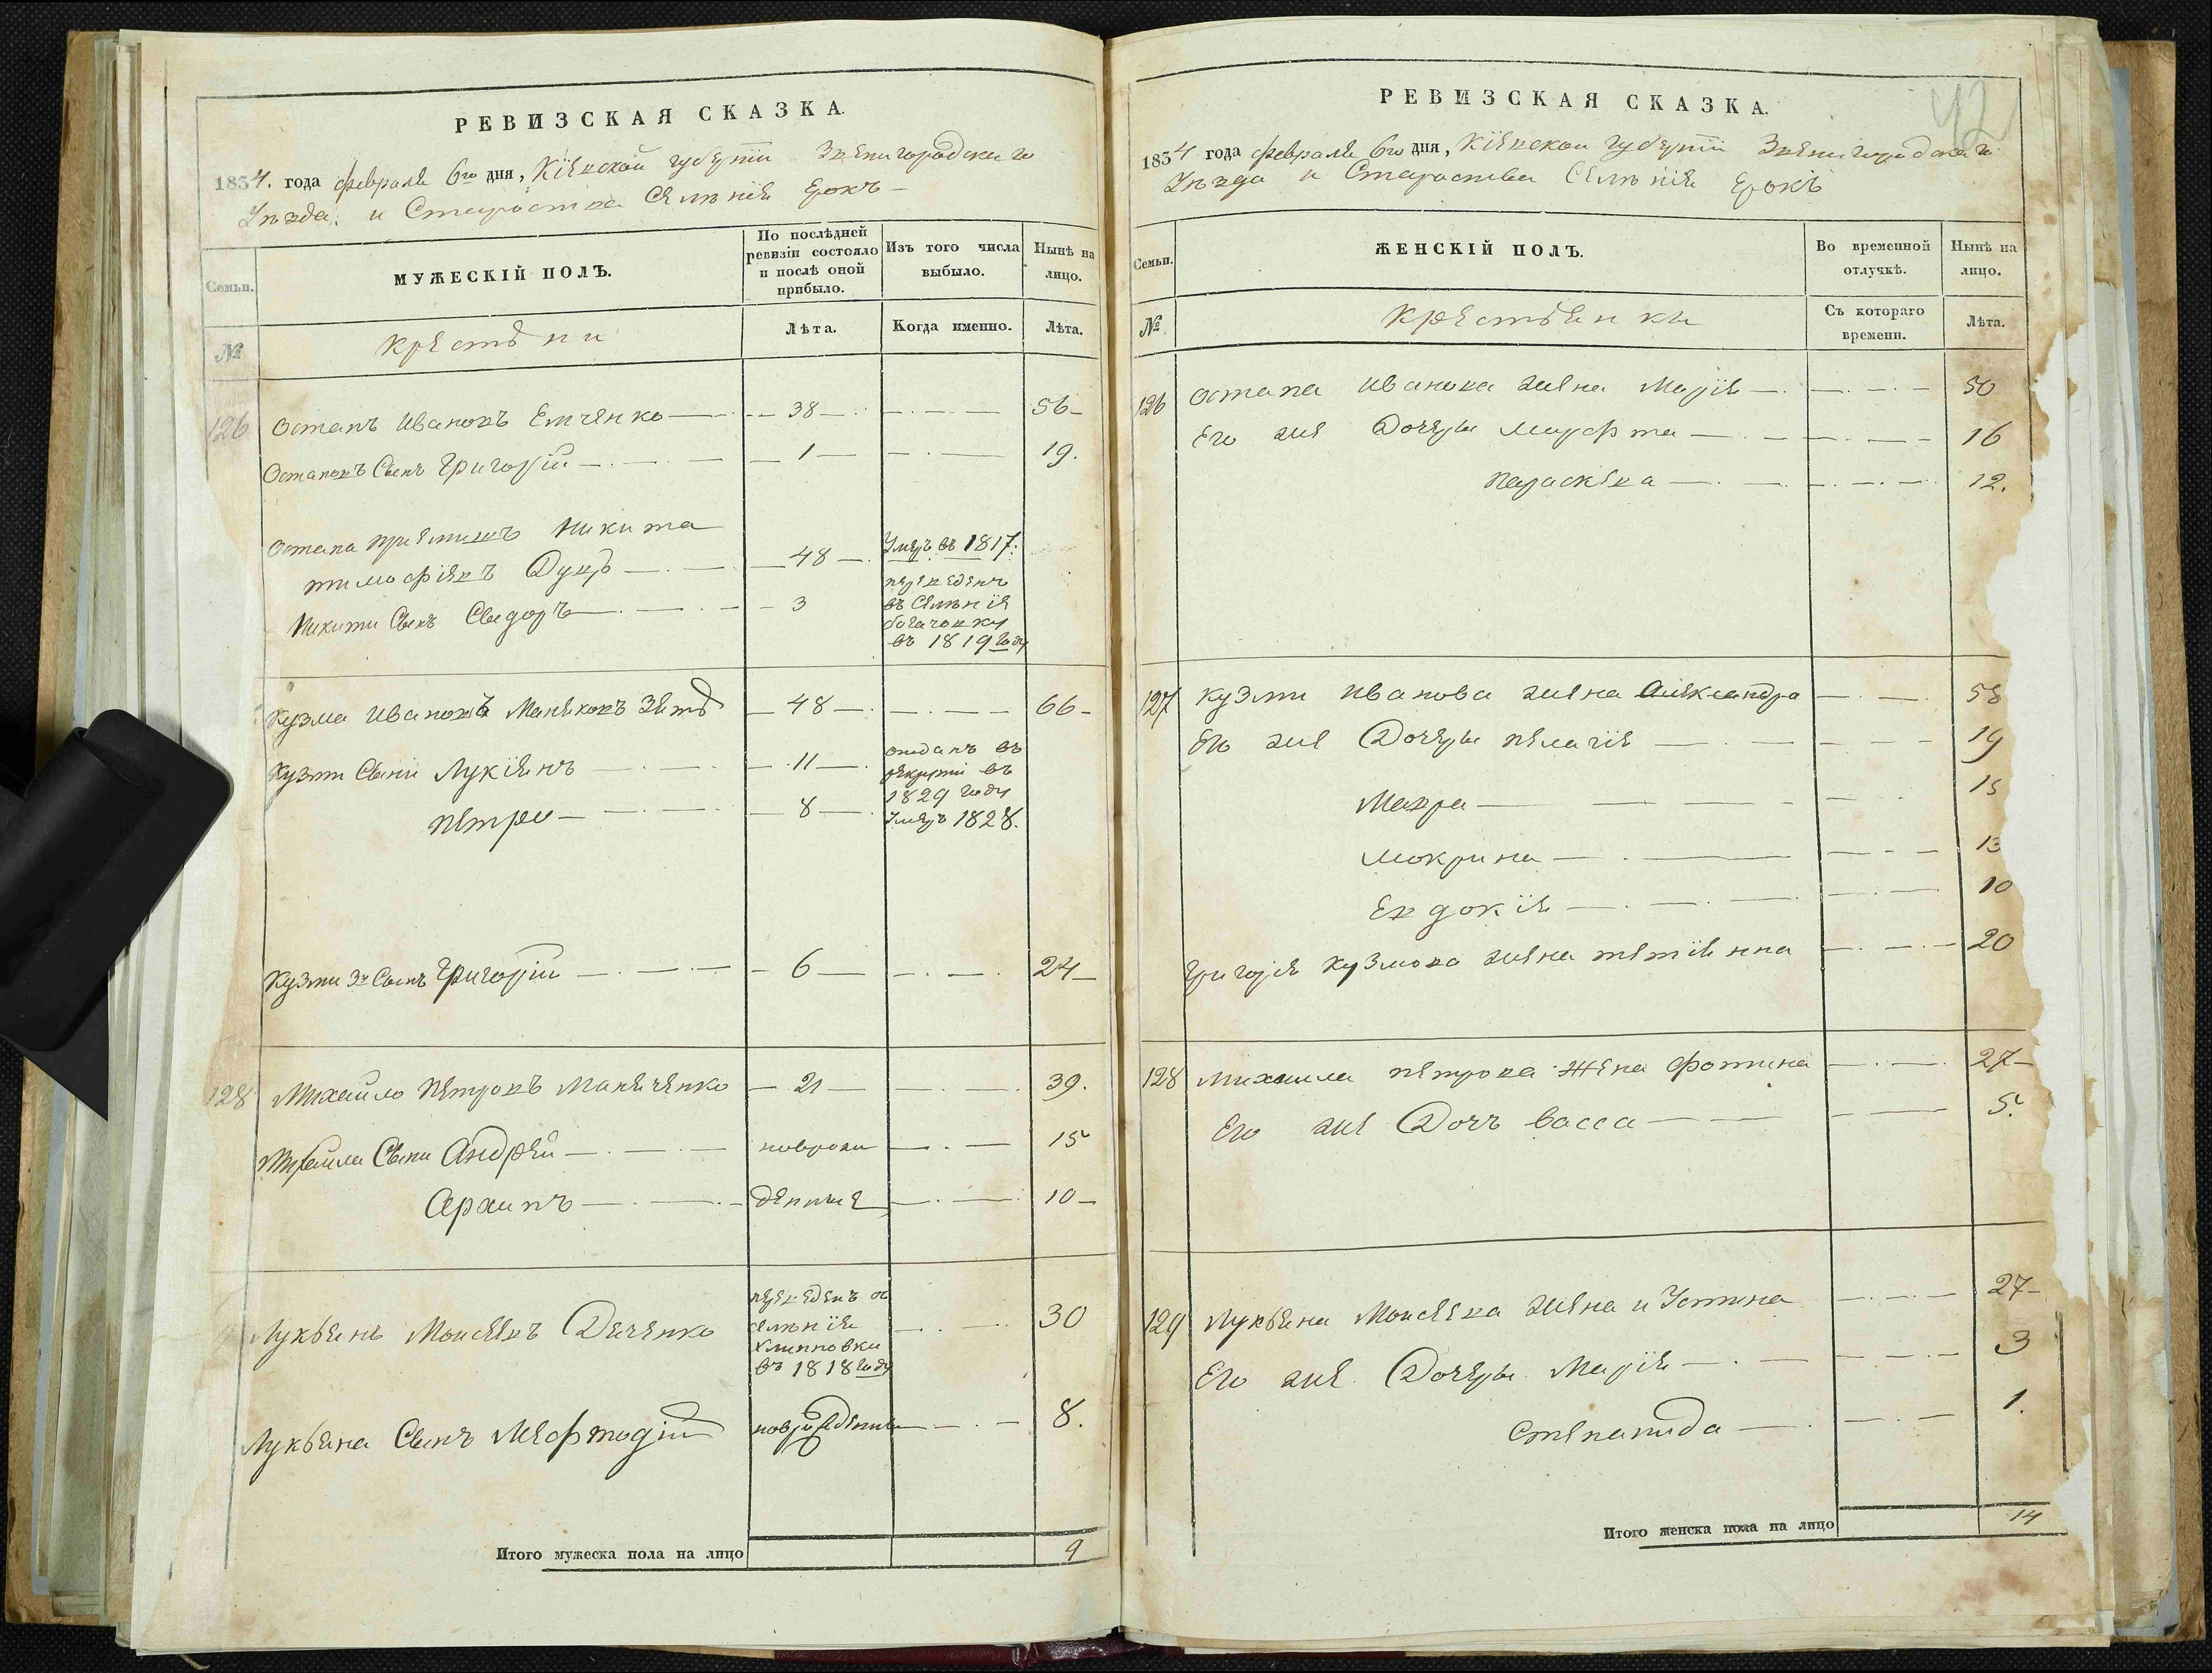 РЕВИЗСКАЯ СКАЗКА.
1834. года февраля 6го дня, Кіевской губерніи Звенигородскаго
Уѣзда и Староства Селѣнія Ерокъ
Семьи.
МУЖЕСКІЙ ПОЛЪ.
По послѣдней ревизіи состояло и послѣ оной прибыло.
Изъ того числа выбыло.
Нынѣ на лицо.
№
Крестьяни
Лѣта.
Когда именно.
Лѣта.
126 Остапъ Ивановъ Емченко 38 56
Остаповъ Сынъ Григорій 1 19.
Остапа пріемишъ Никита
тимофіевъ Дукъ 48 Умеръ въ 1817:
Никити Сынъ Сыдоръ 3 переведенъ
въ Селѣнія
богачовку
въ 1819 году
Кузма Ивановъ Маняковъ Зять 48 66
Кузми Сыни Лукіянъ 11 отданъ въ
рекруты въ
1829 году
Петро 8 Умеръ 1828.
Кузми 3й Сынъ Григорій 6 24
128 Михайло Петровъ Маняченко 21 39.
Михайла Сыни Андрей новорож 15
Архипъ денние 10
Лукьянъ Моисеевъ Дяченко переведенъ съ
селѣнія
Хлиповки
въ 1818 году 30
Лукьяна Сынъ Мефтодій новорожденни 8.
Итого мужеска пола на лицо 9
42
РЕВИЗСКАЯ СКАЗКА.
1834 года февраля 6го дня, Кіевской губерніи Звенигородскаго
Уѣзда и Староства Селѣнія Ерокъ
Семьи.
ЖЕНСКІЙ ПОЛЪ.
Во временной отлучкѣ.
Нынѣ на лицо.
№
Крестьянки
Съ котораго времени.
Лѣта.
126 Остапа Иванова жена Марія 50
Его же Дочеры Марфта 16
Параскева 12.
127 Кузми Иванова жена Александра 58
Его же Дочеры пелагія 19
Мавра 15
Мокрина 13
Евдокія 10
Григорія Кузмова жена тетіянна 20
128 Михаила петрова Жена Фотина 27
Его же Дочъ Васса 5.
129 Лукьяна Моисеева жена иУстина 27
Его же Дочеры Марія 3
Степанида 1.
Итого женска пола на лицо 14